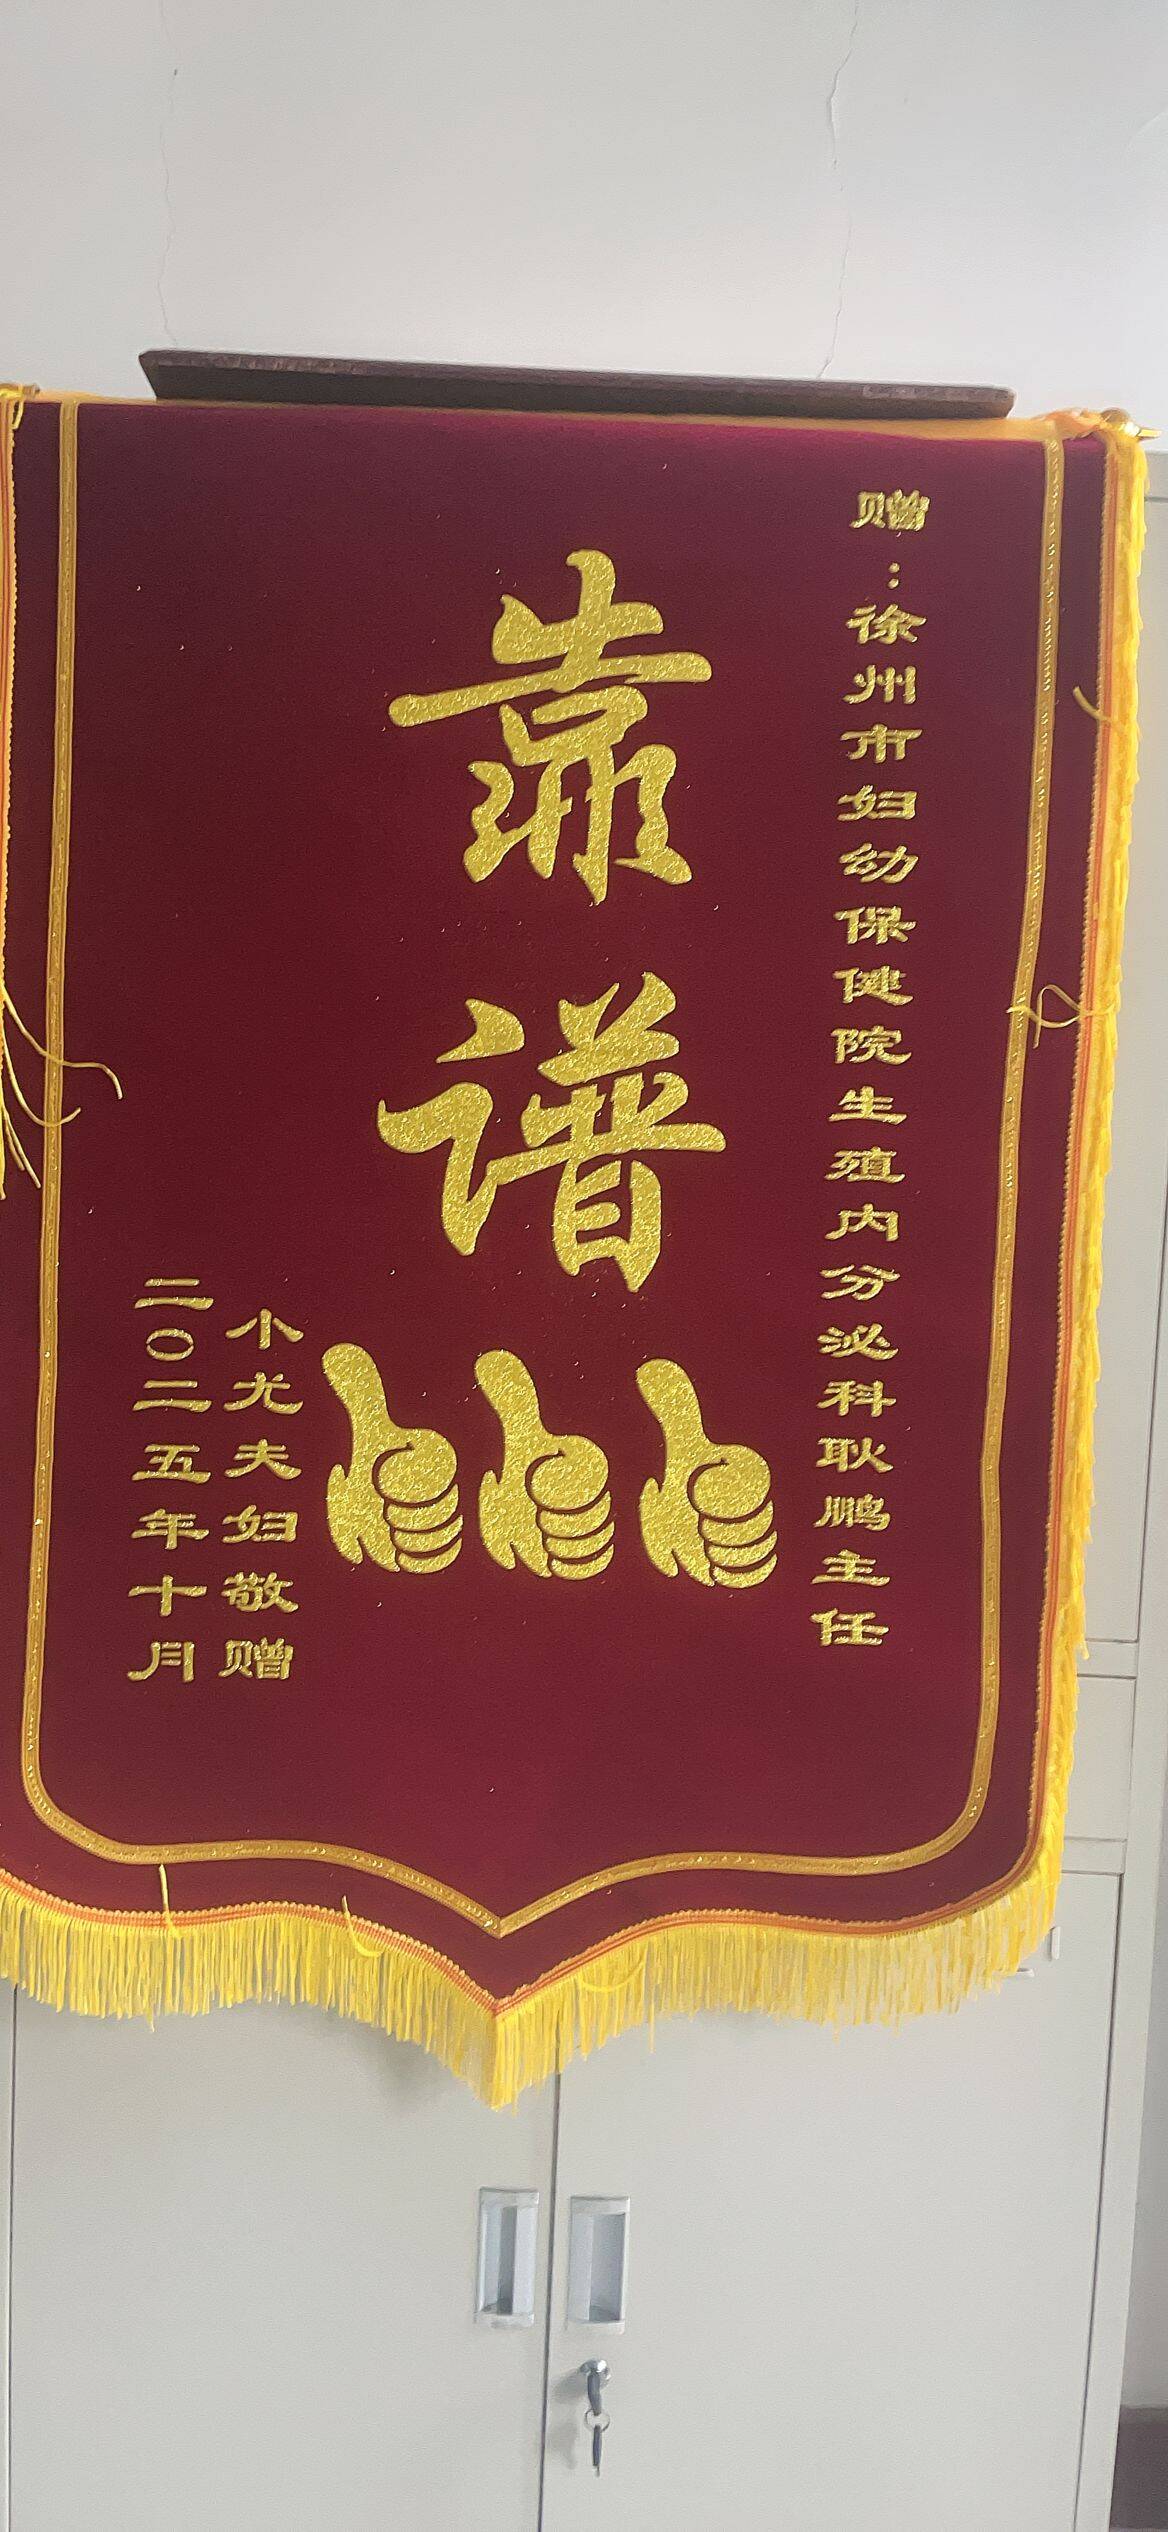 赠：徐州市妇幼保健院生殖内分泌科耿鹏主任
靠谱
小尤夫妇敬赠
二〇二五年十月